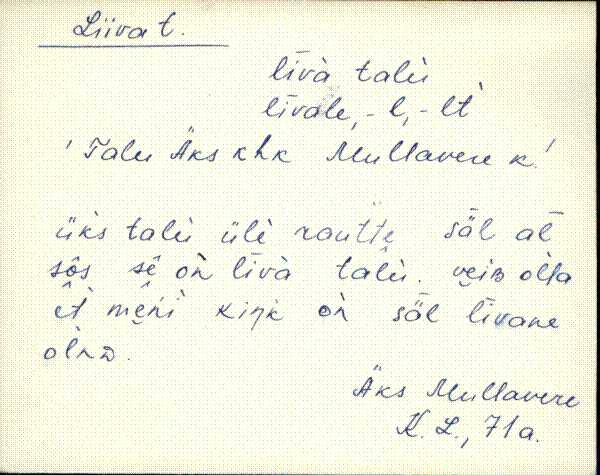 Liiva t.
līvà talù
līvale, -l, -lt
'Talu Äks khk Mullavere k.'
üks talù ülè rautte säl al
sôs sê òn līvà talù. veiʙ òlla
êt mêni kiŋk òn säl līvane
òlnᴅ.
Äks Mullavere
K. L., 71a.